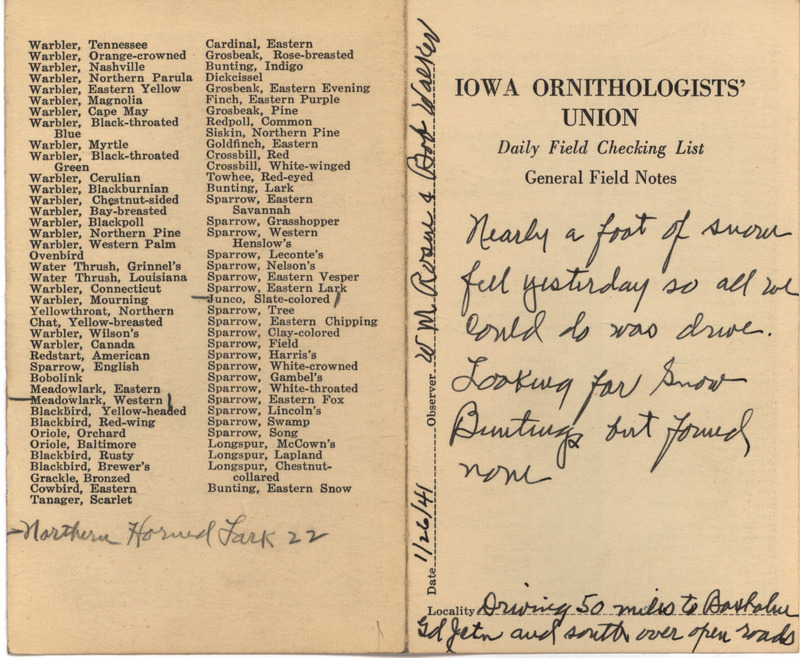 Warbler, Tennessee
Warbler, Orange-crowned
Warbler, Nashville
Warbler, Northern Parula
Warbler, Eastern Yellow
Warbler, Magnolia
Warbler, Cape May
Warbler, Black-throated
Blue
Warbler, Myrtle
Warbler, Black-throated
Green
Warbler, Cerulian
Warbler, Blackburnian
Warbler, Chestnut-sided
Warbler, Bay-breasted
Warbler, Blackpoll
Warbler, Northern Pine
Warbler, Western Palm
Ovenbird
Water Thrush, Grinnel's
Water Thrush, Louisiana
Warbler, Connecticut
Warbler, Mourning
Yellowthroat, Northern
Chat, Yellow-breasted
Warbler, Wilson's
Warbler, Canada
Redstart, American
Sparrow, English
Bobolink
Meadowlark, Eastern
Meadowlark, Western 1
Blackbird, Yellow-headed
Blackbird, Red-wing
Oriole, Orchard
Oriole, Baltimore
Blackbird, Rusty
Blackbird, Brewer's
Grackle, Bronzed
Cowbird, Eastern
Tanager, Scarlet
Northern Horned Lark 22
Cardinal, Eastern
Grosbeak, Rose-breasted
Bunting, Indigo
Dickcissel
Grosbeak, Eastern Evening
Finch, Eastern Purple
Grosbeak, Pine
Redpoll, Common
Siskin, Northern Pine
Goldfinch, Eastern
Crossbill, Red
Crossbill, White-winged
Towhee, Red-eyed
Bunting, Lark
Sparrow, Eastern
Savannah
Sparrow, Grasshopper
Sparrow, Western
Henslow's
Sparrow, Leconte's
Sparrow, Nelson's
Sparrow, Eastern Vesper
Sparrow, Eastern Lark
Junco, Slate-colored 1
Sparrow, Tree
Sparrow, Eastern Chipping
Sparrow, Clay-colored
Sparrow, Field
Sparrow, Harris's
Sparrow, White-crowned
Sparrow, Gambel's
Sparrow, White-throated
Sparrow, Eastern Fox
Sparrow, Lincoln's
Sparrow, Swamp
Sparrow, Song
Longspur, McCown's
Longspur, Lapland
Longspur, Chestnut-
collared
Bunting, Eastern Snow
Date 1/26/41 Observer W M Rosene & Bob Walker
IOWA ORNITHOLOGISTS'
UNION
Daily Field Checking List
General Field Notes
Nearly a foot of snow
fell yesterday so all we
could do was drive.
Looking for Snow
Buntings but found
none
Locality Driving 50 miles to
and south over open roads